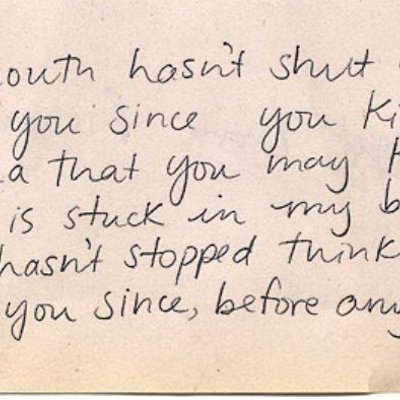 outh hasn't shut
you since you Ki
a that you may k
is stuck in my b
hasn't stopped think
you since, before any